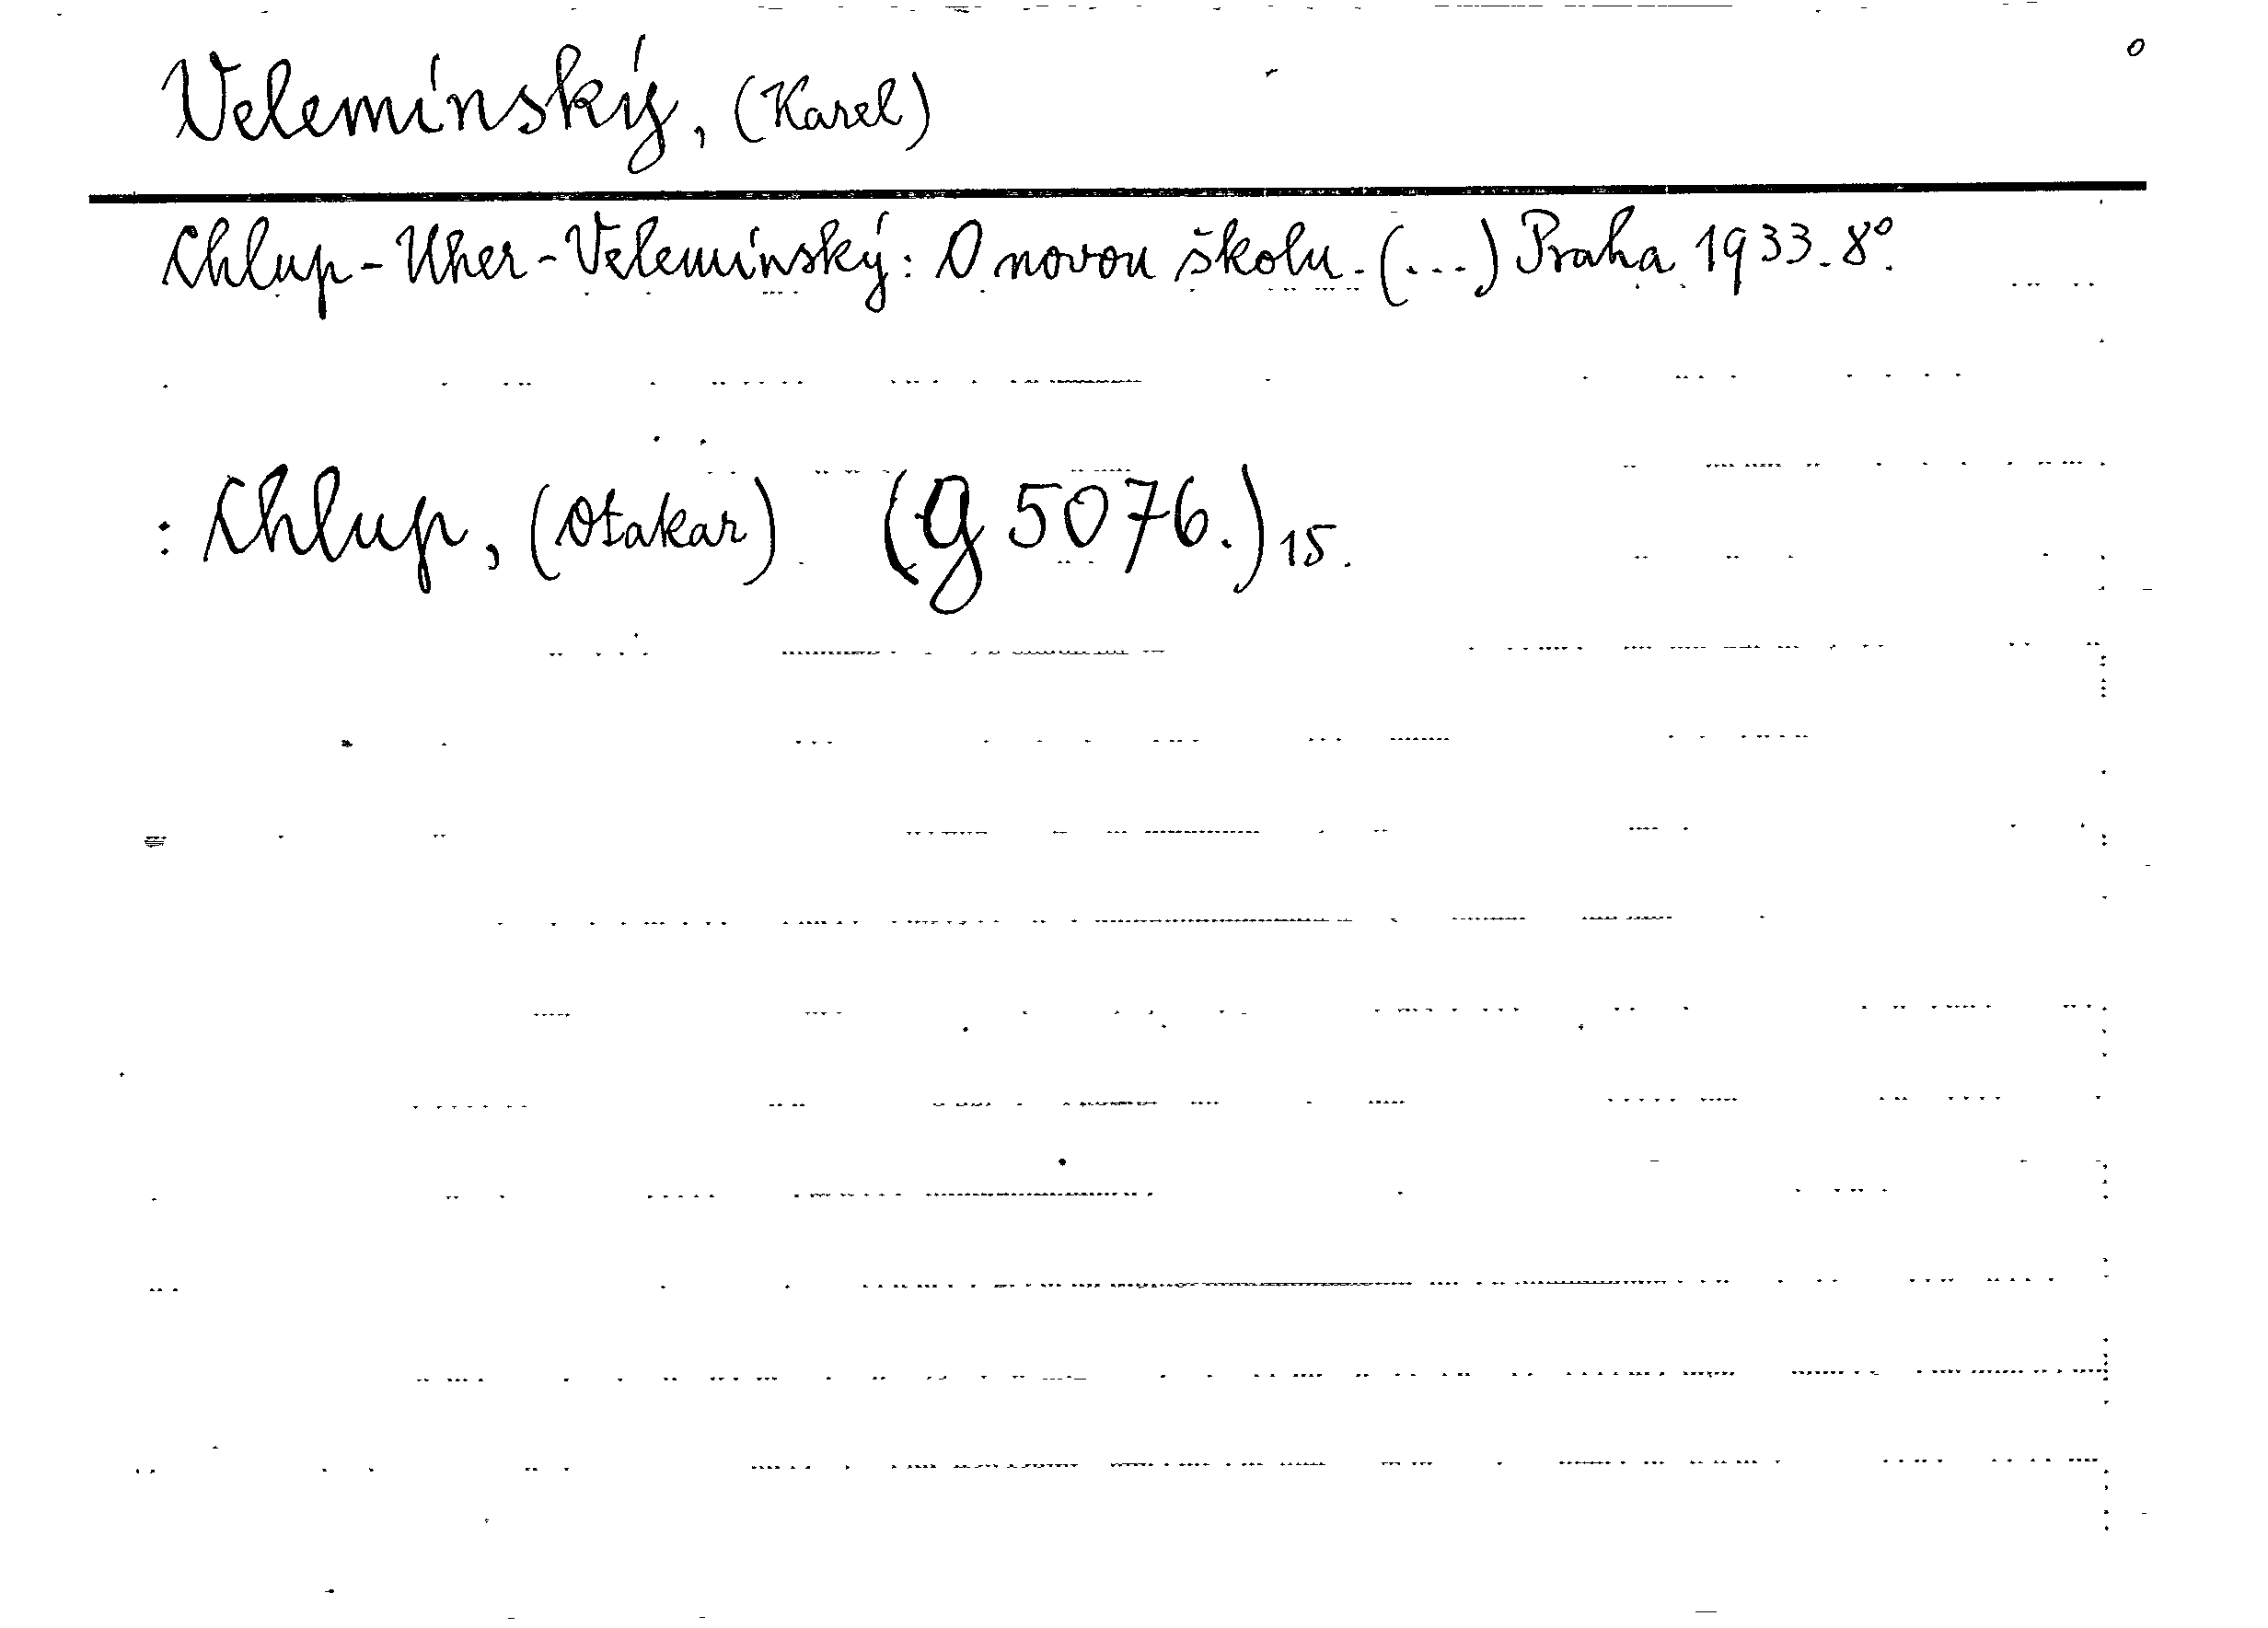 Velemínský, (Karel)
o
Chlup-Uher-Velemínský: O novou školu. (...) Praha 1933. 8°.
: Chlup, (Otakar) (g 5076.) 15.